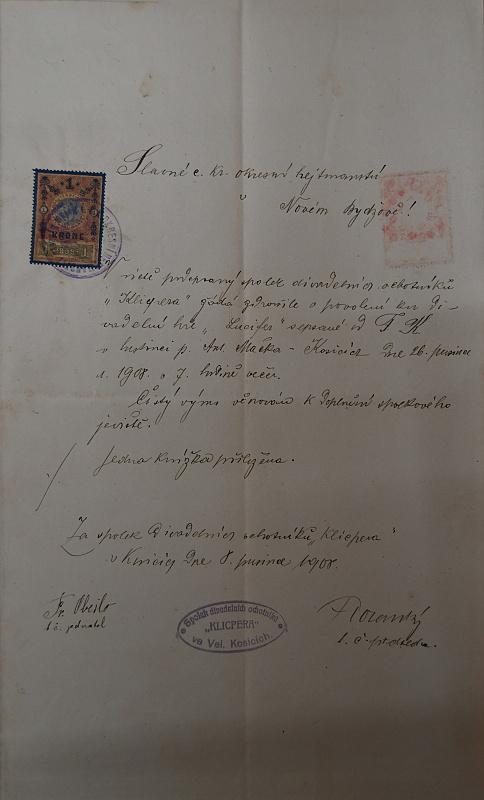 Slavné c. kr. okresní hejtmanství
v
Novém Bydžově!
1
KRONE
V úctě podepsaný spolek divadelních ochotníků
„Klicpera" žádá zdvořile o povolení ku di-
vadelní hře „Lucifer" sepsané od F K
v hostinci p. Ant. Maška - Kosicích dne 26. prosince
1908 o 7. hodině večer.
Čistý výnos věnován k doplnění spolkového
jeviště.
Jedna knížka přiložena.
Za spolek divadelních ochotníků „Klicpera"
v Kosicích dne 8. prosince 1908.
Fr.
t. č. jednatel
Spolek divadelních ochotníků
"KLICPERA"
ve Vel. Kosicích.
t. č. předseda.